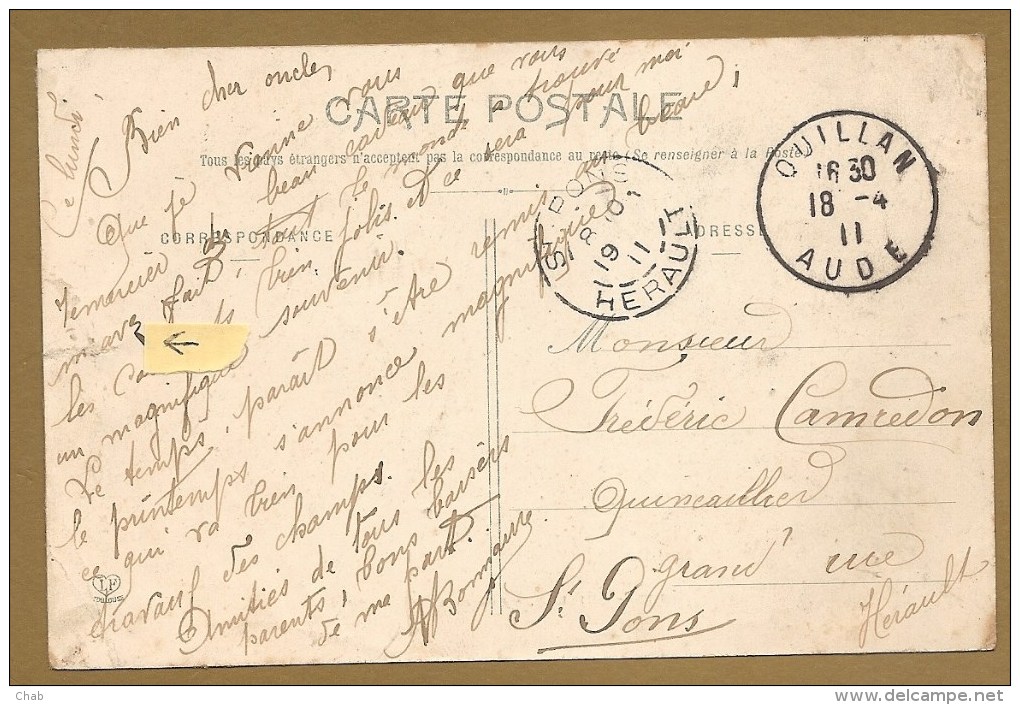 CARTE POSTALE
Tous les pays étrangers n'acceptent pas la correspondance au recto (Se renseigner à la Poste)
CORRESPONDANCE
ADRESSE
ce lundi
Bien cher oncle,
Que je vienne vous
remercier du beau raveur que vous
m'avez fait, tout le monde a trouvé
les bien jolis. Ce sera pour moi
un magnifique souvenir.
Le temps, paraît s'être remis au beau;
le printemps s'annonce magnifique
ce qui va bien pour les
travaux des champs.
Amitiés de tous les
parents, bons baisers
de ma part.
ABonnaure
QUILLAN
16 30
18 - 4
11
AUDE
ST PONS
8 10
19
11
HERAULT
Monsieur
Frédéric Camredon
Quincaillier
grand' rue
St Pons
Hérault
LF
TOULOUSE
Chab
www.delcampe.net